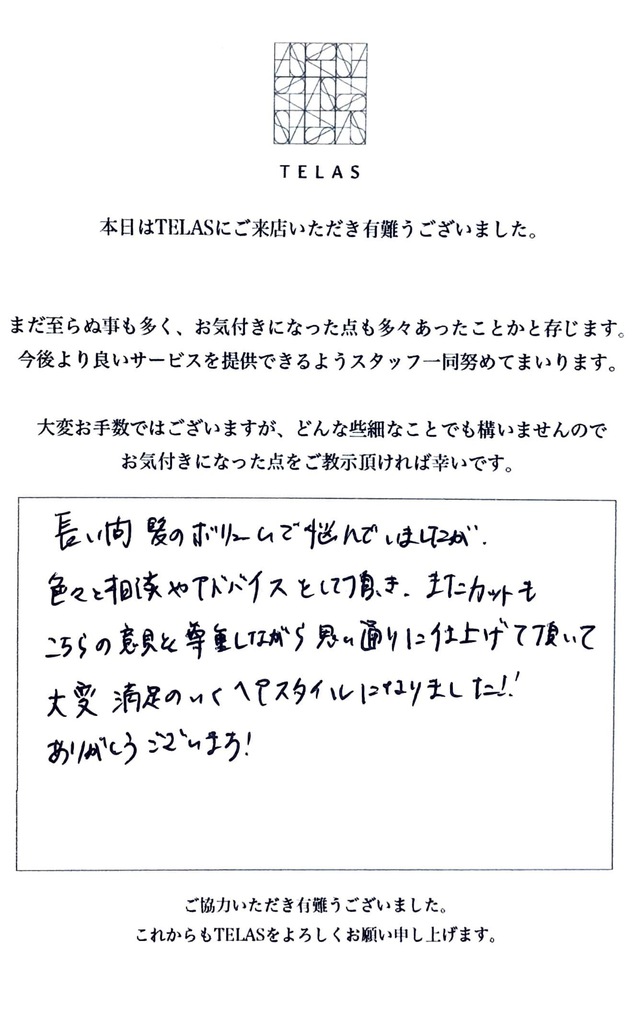 TELAS
本日はTELASにご来店いただき有難うございました。
まだ至らぬ事も多く、お気付きになった点も多々あったことかと存じます。
今後より良いサービスを提供できるようスタッフ一同努めてまいります。
大変お手数ではございますが、どんな些細なことでも構いませんので
お気付きになった点をご教示頂ければ幸いです。
長い間 髪のボリュームで悩んでいましたが、
色々と相談やアドバイスをして頂き、またカットも
こちらの意見を尊重しながら思い通りに仕上げて頂いて
大変 満足のいくヘアスタイルになりました!!
ありがとうございます!
ご協力いただき有難うございました。
これからもTELASをよろしくお願い申し上げます。